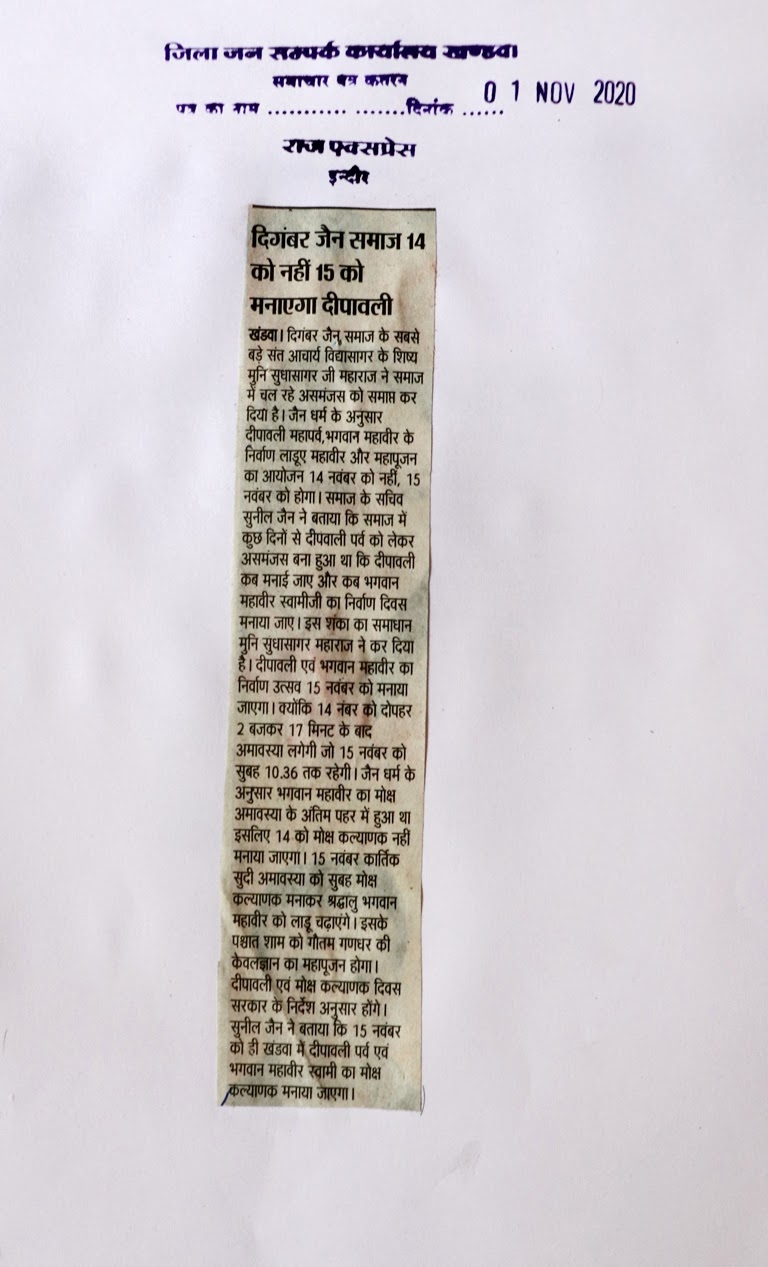 जिला जन सम्पर्क कार्यालय खण्डवा
समाचार पत्र कतरन
पत्र का नाम ........... .......दिनांक ......
0 1 NOV 2020
राज एक्सप्रेस
इन्दौर
दिगंबर जैन समाज 14
को नहीं 15 को
मनाएगा दीपावली
खंडवा। दिगंबर जैन समाज के सबसे
बड़े संत आचार्य विद्यासागर के शिष्य
मुनि सुधासागर जी महाराज ने समाज
में चल रहे असमंजस को समाप्त कर
दिया है। जैन धर्म के अनुसार
दीपावली महापर्व,भगवान महावीर के
निर्वाण लाडूए महावीर और महापूजन
का आयोजन 14 नवंबर को नहीं, 15
नवंबर को होगा। समाज के सचिव
सुनील जैन ने बताया कि समाज में
कुछ दिनों से दीपवाली पर्व को लेकर
असमंजस बना हुआ था कि दीपावली
कब मनाई जाए और कब भगवान
महावीर स्वामीजी का निर्वाण दिवस
मनाया जाए। इस शंका का समाधान
मुनि सुधासागर महाराज ने कर दिया
है। दीपावली एवं भगवान महावीर का
निर्वाण उत्सव 15 नवंबर को मनाया
जाएगा। क्योंकि 14 नंबर को दोपहर
2 बजकर 17 मिनट के बाद
अमावस्या लगेगी जो 15 नवंबर को
सुबह 10.36 तक रहेगी। जैन धर्म के
अनुसार भगवान महावीर का मोक्ष
अमावस्या के अंतिम पहर में हुआ था
इसलिए 14 को मोक्ष कल्याणक नहीं
मनाया जाएगा। 15 नवंबर कार्तिक
सुदी अमावस्या को सुबह मोक्ष
कल्याणक मनाकर श्रद्धालु भगवान
महावीर को लाडू चढ़ाएंगे। इसके
पश्चात शाम को गौतम गणधर की
केवलज्ञान का महापूजन होगा।
दीपावली एवं मोक्ष कल्याणक दिवस
सरकार के निर्देश अनुसार होंगे।
सुनील जैन ने बताया कि 15 नवंबर
को ही खंडवा में दीपावली पर्व एवं
भगवान महावीर स्वामी का मोक्ष
कल्याणक मनाया जाएगा।